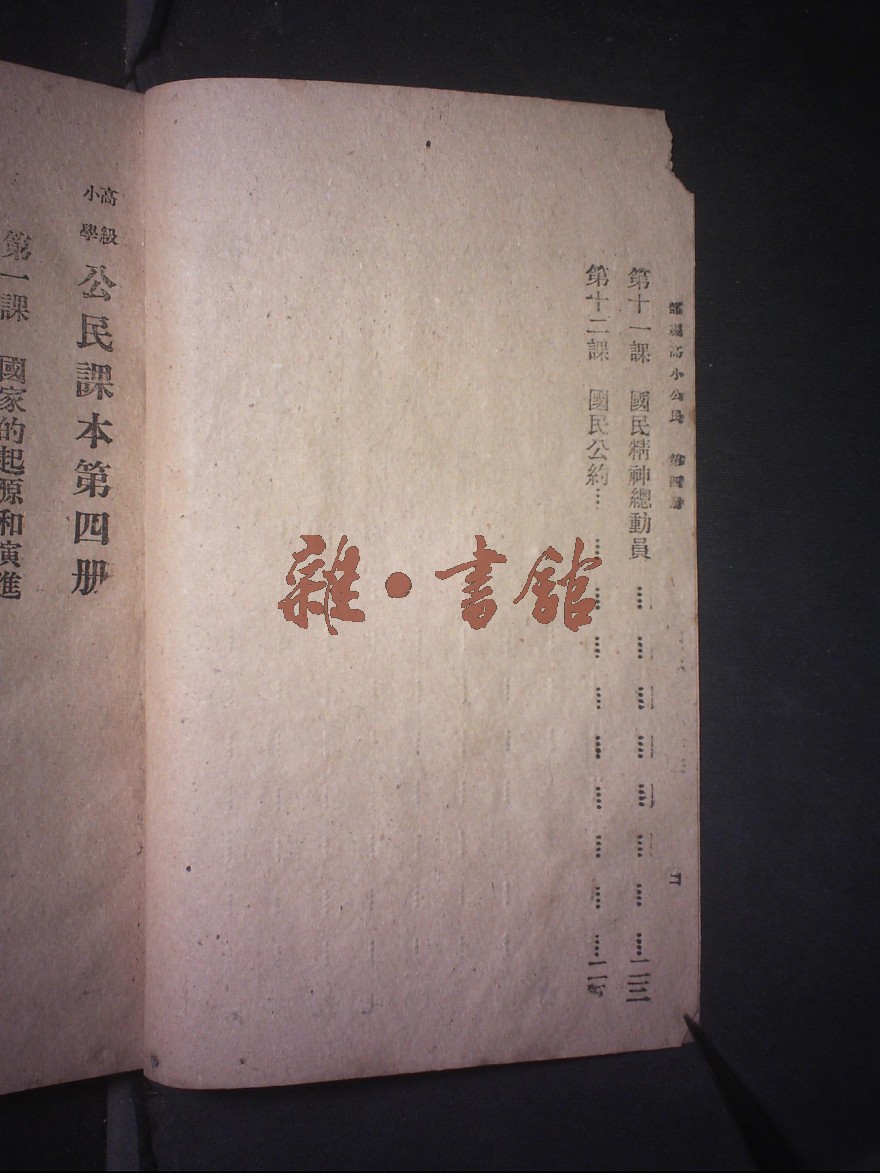 部編高小公民 第四册
第十一課 國民精神總動員
第十二課 國民公約
雜·書館
高級
小學
公民課本第四册
第一課 國家的起源和演進